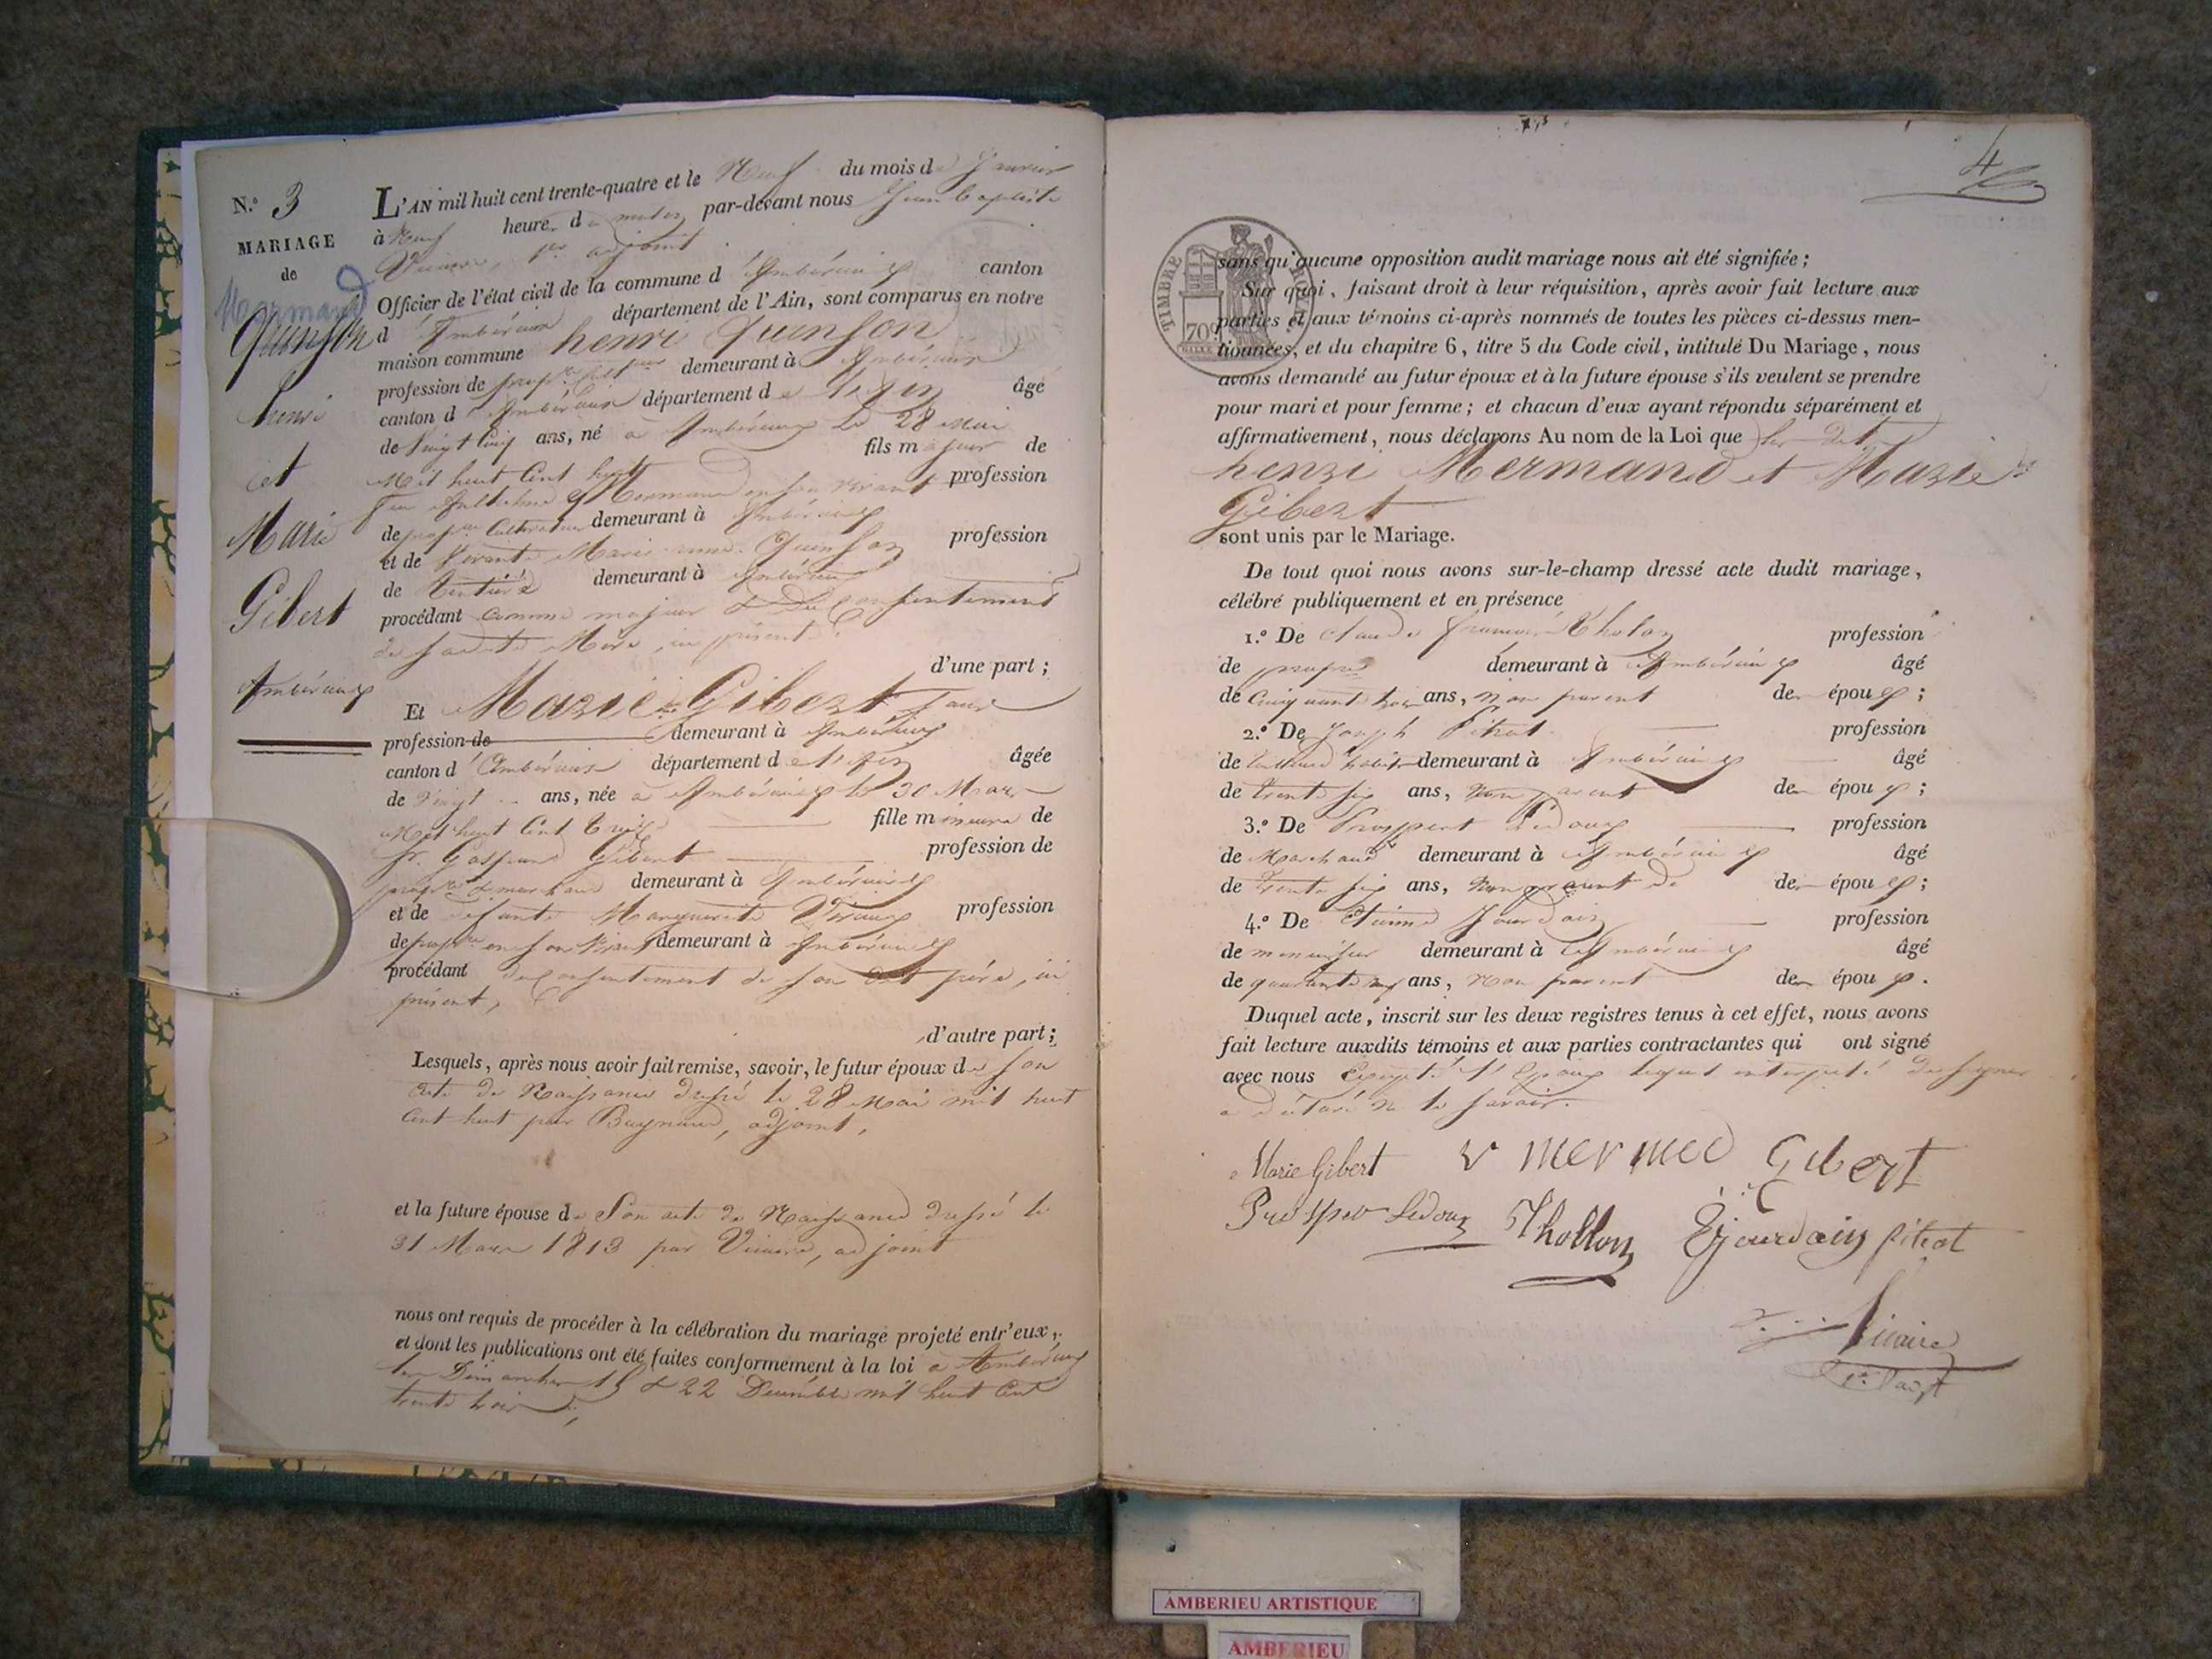 N.º 3
MARIAGE
de
Mermand
Quinson
henri
et
Marie
Gibert
Ambérieux
L'AN mil huit cent trente-quatre et le Neuf du mois de Janvier
à Neuf heure de matin par-devant nous Jean baptiste
Vicaire, 1er adjoint
Officier de l'état civil de la commune d'Ambérieux canton
d'Ambérieux département de l'Ain, sont comparus en notre
maison commune henri Quinson
profession de demeurant à Ambérieux
canton d'Ambérieux département de l'Ain âgé
de Vingt Cinq ans, né à Ambérieux le 28 Mai
Mil huit Cent huit fils majeur de
feu Mermand en son vivant profession
de propre Cultivateur demeurant à Ambérieux
et de vivante Marie Quinson profession
de Rentière demeurant à Ambérieux
procédant comme majeur & du Consentement
de sadite Mère, ici présente.
d'une part ;
Et Marie Gibert
profession de demeurant à Ambérieux
canton d'Ambérieux département de l'Ain âgée
de Vingt ans, née à Ambérieux le 30 Mars
Mil huit Cent Treize fille mineure de
Sr. Gaspard Gibert profession de
propre & marchand demeurant à Ambérieux
et de défunte Marguerite profession
de propre en son vivant demeurant à Ambérieux
procédant du Consentement de son dit père, ici
présent,
d'autre part ;
Lesquels, après nous avoir fait remise, savoir, le futur époux de son
acte de Naissance dressé le 28 Mai mil huit
Cent huit par adjoint,
et la future épouse de Son acte de Naissance dressé le
31 Mars 1813 par Vicaire, adjoint
nous ont requis de procéder à la célébration du mariage projeté entr'eux,
et dont les publications ont été faites conformément à la loi à Ambérieux
les Dimanches 15 & 22 Décembre mil huit Cent
trente trois
4
TIMBRE ROYAL
70c
sans qu'aucune opposition audit mariage nous ait été signifiée ;
Sur quoi, faisant droit à leur réquisition, après avoir fait lecture aux
parties et aux témoins ci-après nommés de toutes les pièces ci-dessus men-
tionnées, et du chapitre 6, titre 5 du Code civil, intitulé Du Mariage, nous
avons demandé au futur époux et à la future épouse s'ils veulent se prendre
pour mari et pour femme ; et chacun d'eux ayant répondu séparément et
affirmativement, nous déclarons Au nom de la Loi que les dits
henri Mermand et Marie
Gibert
sont unis par le Mariage.
De tout quoi nous avons sur-le-champ dressé acte dudit mariage,
célébré publiquement et en présence
1.º De Claude Tholon profession
de propre demeurant à Ambérieux âgé
de Cinquante trois ans, non parent des époux ;
2.º De Joseph Pitrat profession
de demeurant à Ambérieux âgé
de trente six ans, non parent des époux ;
3.º De Prosper Ledoux profession
de Marchand demeurant à Ambérieux âgé
de trente six ans, non parent de des époux ;
4.º De Etienne Jourdain profession
de menuisier demeurant à Ambérieux âgé
de quarante ans, Non parent des époux.
Duquel acte, inscrit sur les deux registres tenus à cet effet, nous avons
fait lecture auxdits témoins et aux parties contractantes qui ont signé
avec nous Excepté l'Epoux lequel interpellé de signer
a déclaré ne le savoir.
Marie Gibert v mermed Gibert
Prosper Ledoux Thollon Ejourdain pitrat
Vicaire